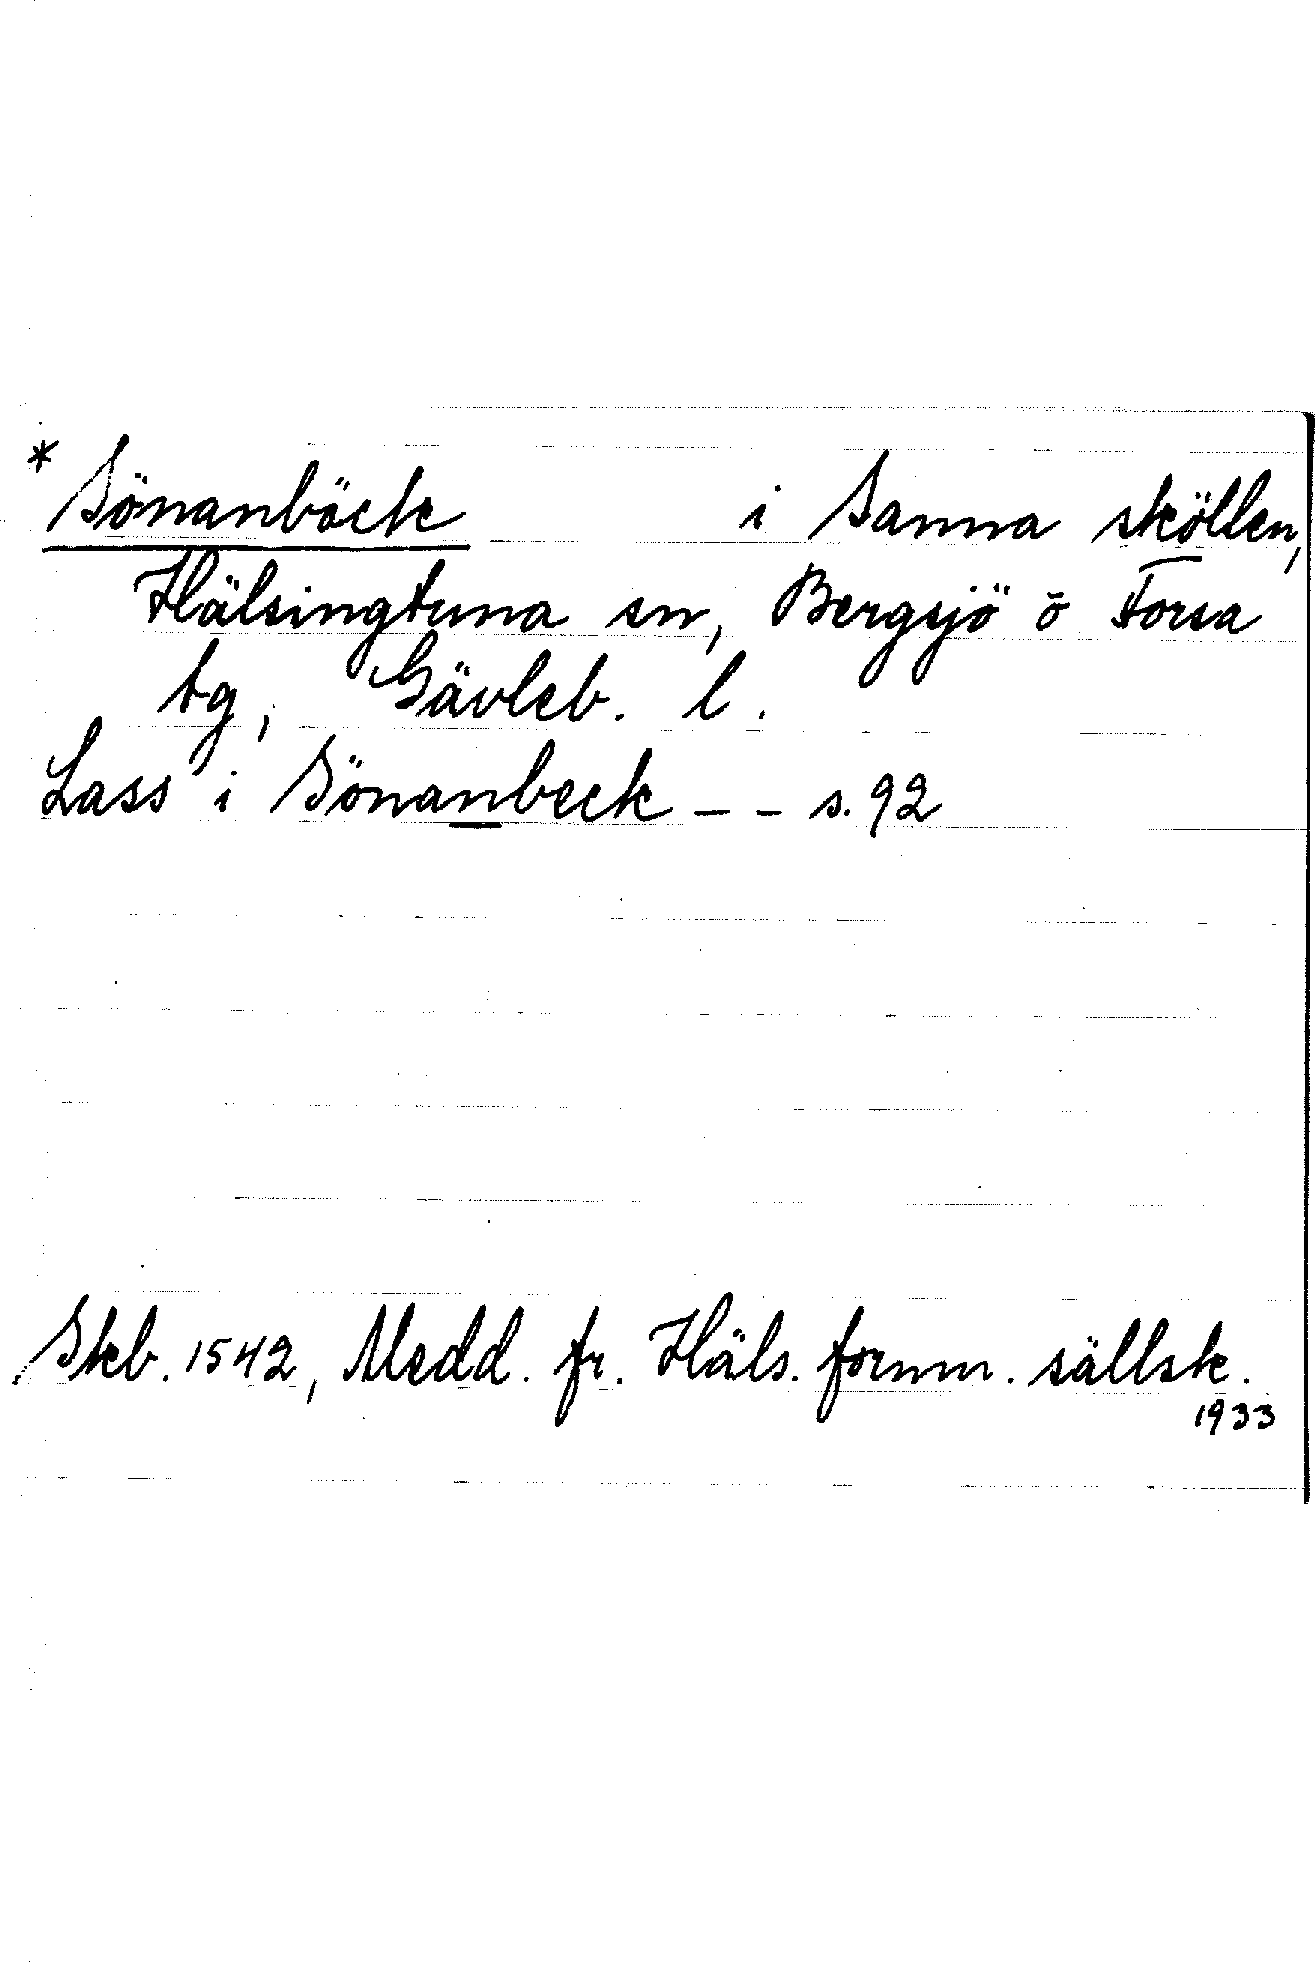 * Sönanbäck i Sanna sköllen,
Hälsingtuna sn, Bergsjö o Forsa
tg, Gävleb. l.
Lass i Sönanbeck – – s. 92
Skb. 1542, Medd. fr. Häls. fornm. sällsk.
1933